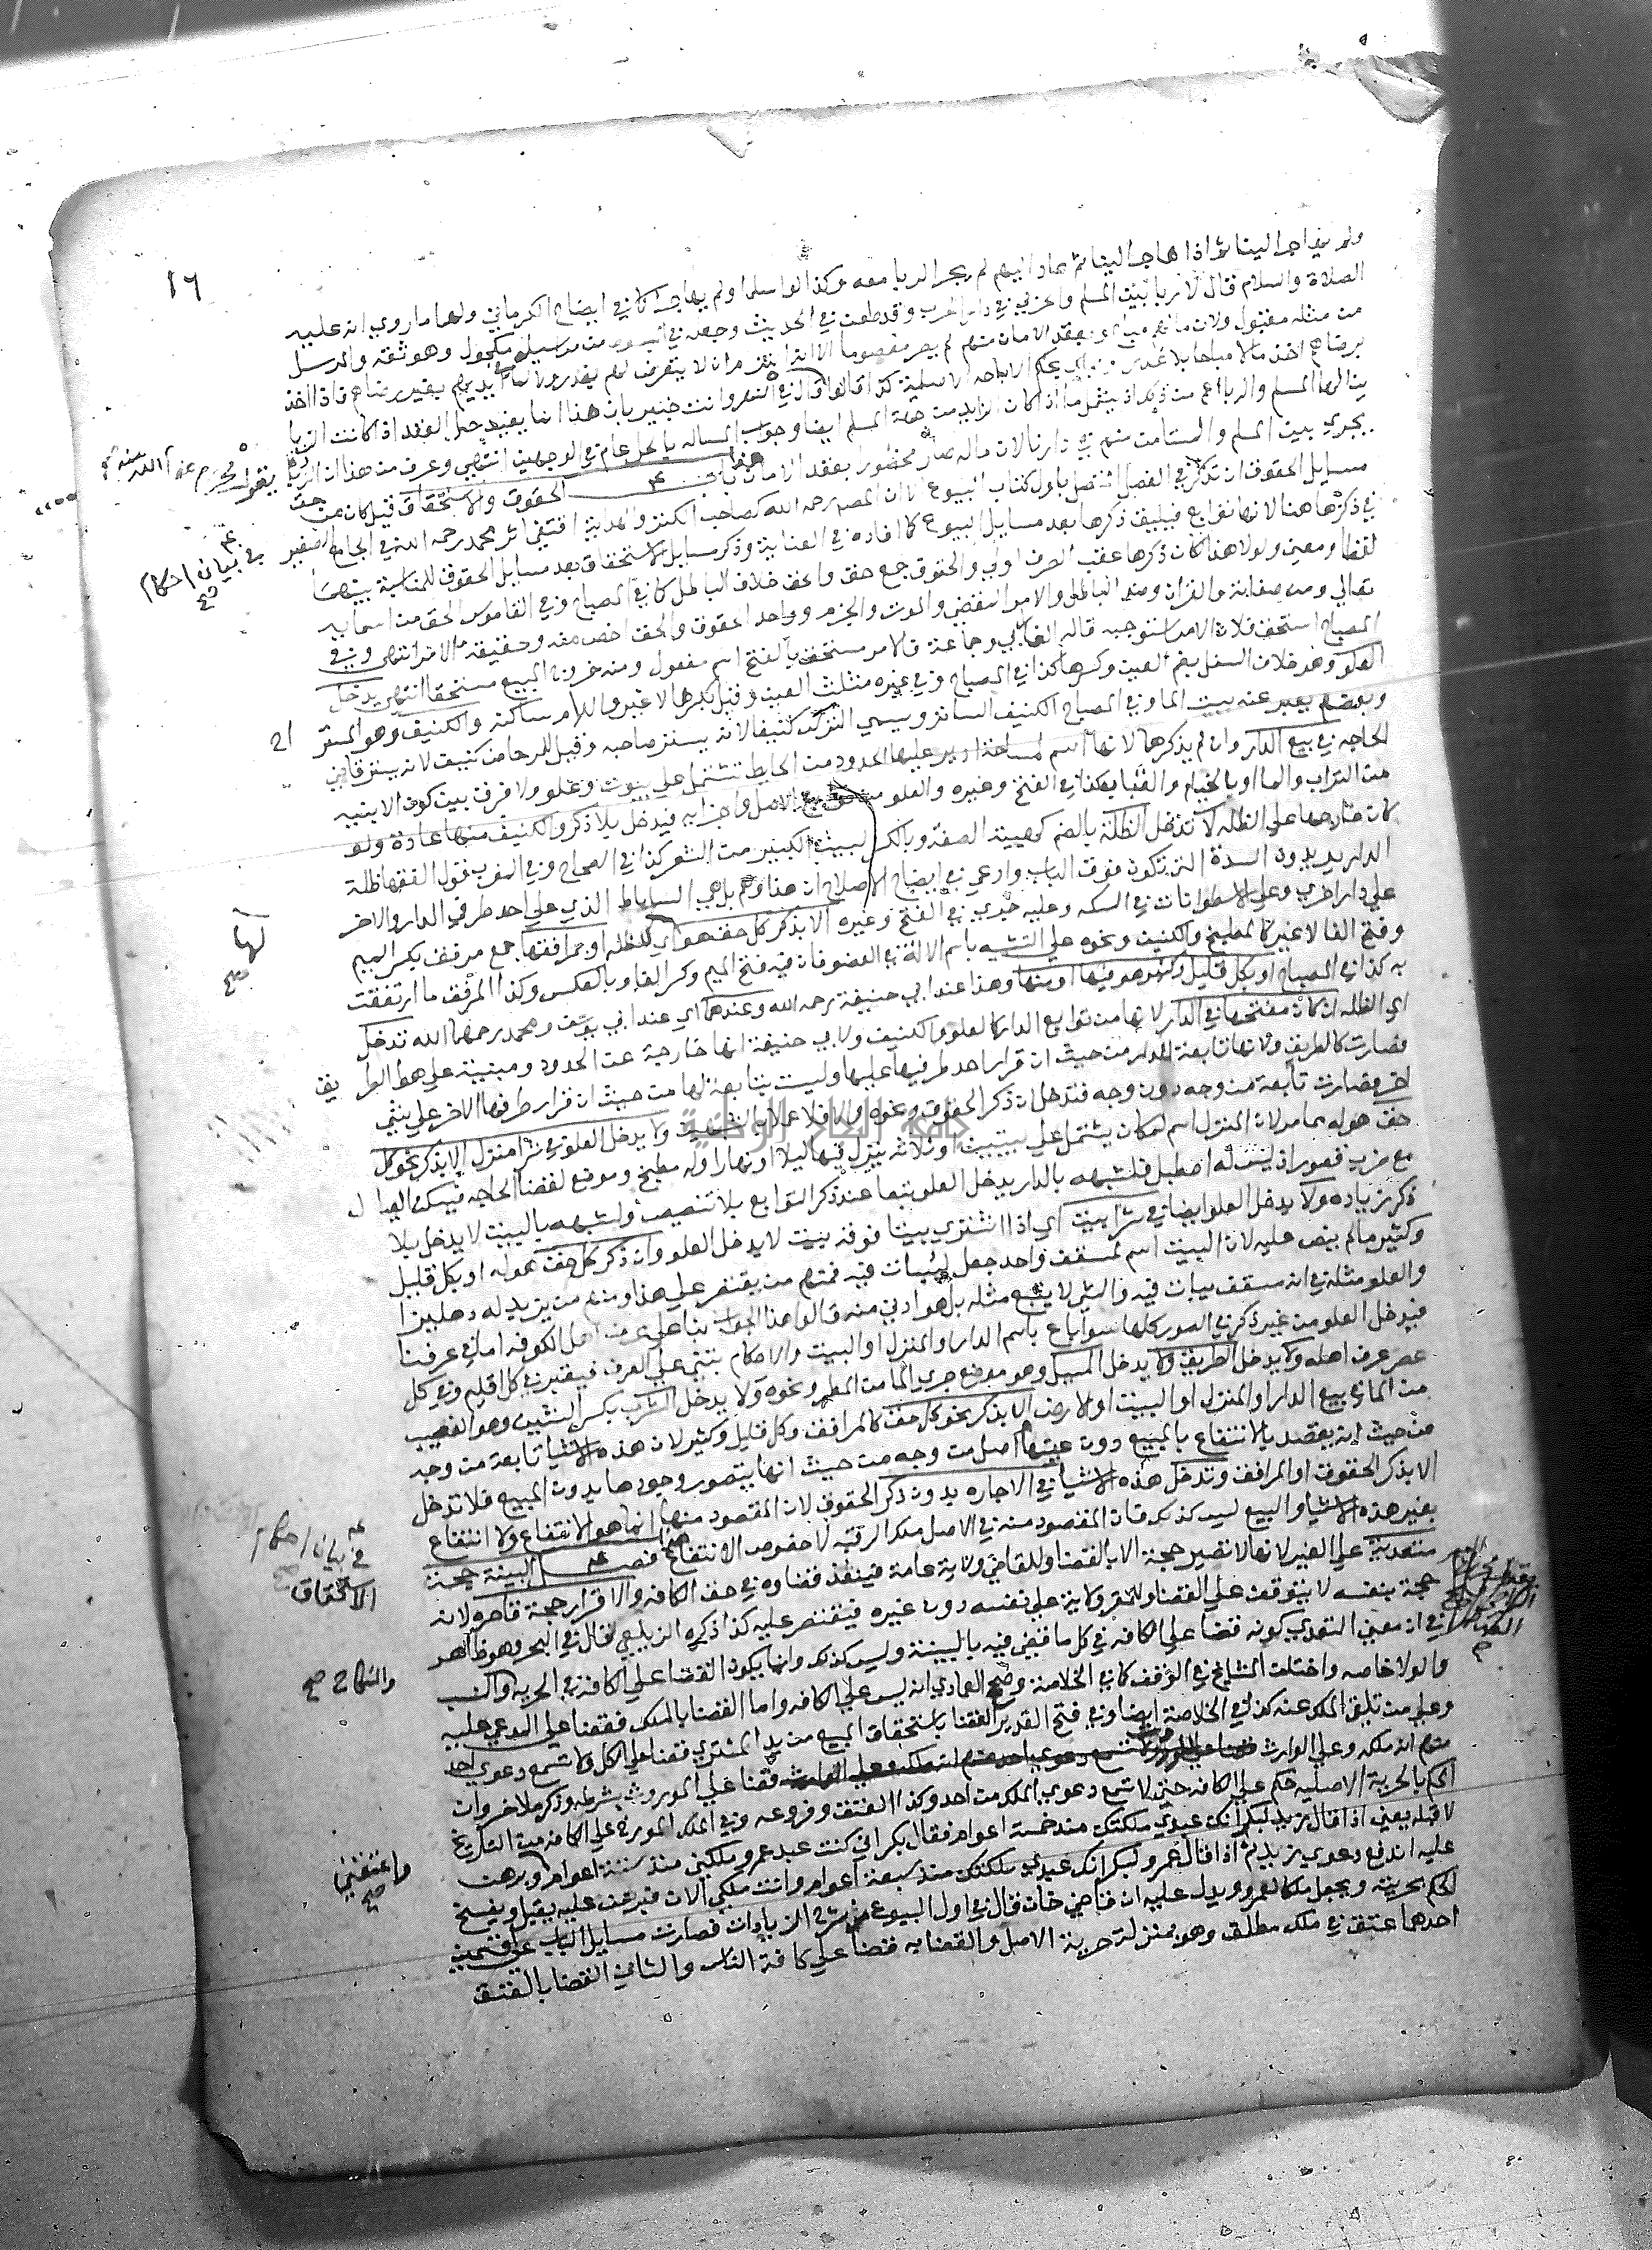 ١٦
ولم يهاجر الينا ثم اذا هاجر الينا ثم عاد اليهم لم يجز الربا معه وكذا لو اسلما ولم يهاجرا كما في ايضاح الكرماني ولهما ما روي انه عليه
الصلاة والسلام قال لا ربا بين المسلم والحربي في دار الحرب وقد طعن في الحديث مكحول وهو ثقة والمرسل
من مثله مقبول ولان مالهم مباح وبعقد الامان منهم لم يصر معصوما الا انه التزم ان لا يتعرض لهم بغدر ولا لما في ايديهم بغير رضاهم فاذا اخذ
برضاهم اخذ مالا مباحا بلا غدر بحكم الاباحة الاصلية
ينالها المسلم والربا اعم من ذلك اذ يشمل ما اذا كان الزايد من جهة المسلم ايضا وجواب المساله بالحل عام في الوجهين انتهى وعرف من هذا ان الربا
يجري بين المسلم والمستامن منهم في دارنا لان ماله صار محظورا بعقد الامان باب الحقوق والاستحقاق قيل كان من حق
مسايل الحقوق ان تذكر في الفصل المتصل باول كتاب البيوع الا ان المص رحمه الله كصاحب الكنز والهداية اقتفى اثر محمد رحمه الله في الجامع الصغير
في ذكرها هنا لانها توابع فيليق ذكرها بعد مسايل البيوع كما افاده في العناية وذكر مسايل الاستحقاق بعد مسايل الحقوق للمناسبة بينهما
لفظا ومعنى ولولا هذا لكان ذكرها عقب الصرف اولى والحقوق جمع حق والحق خلاف الباطل كما في المصباح وفي القاموس الحق من اسمايه
تعالى ومن صفاته والقران وضد الباطل والامر المقضي والموت والحزم وواحد الحقوق والحق اخص منه وحقيقة الامر انتهى وفي
المصباح استحق فلان الامر استوجبه قاله الفارابي وجماعة فالامر مستحق بالفتح اسم مفعول ومنه خرج المبيع مستحقا انتهى يدخل
العلو وهو خلاف السفل بضم العين وكسرها كذا في المصباح وفي غيره مثلث العين وقيل بكسرها لا غير واللام ساكنة والكنيف وهو المستر
وبعضهم يعبر عنه ببيت الماء وفي المصباح الكنيف الساتر ويسمى الترس كنيفا لانه يستر صاحبه وقيل للمرحاض كنيف لانه يستر قاضي
الحاجه في بيع الدار وان لم يذكرها لانها اسم لساحة ادير عليها الحدود من الحايط تشتمل على بيوت وعلو ولا فرق بين كون الابنيه
من التراب والماء او بالخيام والقباب كذا في الفتح وغيره والعلو من توابع الاصل واجزايه فيدخل بلا ذكر والكنيف منها عادة ولو
كان خارجها على الظلة لا تدخل الظلة بالضم كهيئة الصفة وبالكسر لبيت الكبير من الشعر كذا في الصحاح وفي المغرب قول الفقها ظلة
الدار يريدون السدة التي تكون فوق الباب وادعى في ايضاح الاصلاح ان هذا وهم بل هي الساباط الذي على احد طرفي الدار والاخر
على دار اخرى وعلى الاسطوانات في السكه وعليه جرى في الفتح وغيره الا بذكر كل حق هو لها او بمرافقها جمع مرفق بكسر الميم
وفتح الفا لا غير كالمطبخ والكنيف ونحوه على التشبيه باسم الالة في العضو فان فيه فتح الميم وكسر الفا وبالعكس وكذا المرفق ما ارتفقت
به كذا في المصباح او بكل قليل وكثير هو فيها او منها وهذا عند ابي حنيفة رحمه الله وعندهما اي عند ابي يوسف ومحمد رحمهما الله تدخل
اي الظله ان كان مفتحها في الدار لانها من توابع الدار كالعلو والكنيف ولابي حنيفة انها خارجة عن الحدود ومبنية على هوا الطريق
فصارت كالطريق ولانها تابعة للدار من حيث ان قرار احد طرفيها عليها وليست بتابعة لها من حيث ان قرار طرفها الاخر على شي
اخر فصارت تابعة من وجه دون وجه فتدخل ان ذكر الحقوق ونحوه والا فلا عملا بالشبهين ولا يدخل العلو في شرا منزل الا بذكر نحو كل
حق هو له مما مر لان المنزل اسم لمكان يشتمل على بيتين او ثلاثه ينزل فيها ليلا او نهارا وله مطبخ وموضع لقضا الحاجه فيسكن العيال
مع ضرب قصور اذ ليس له اصطبل فلشبهه بالدار يدخل العلو تبعا عند ذكر التوابع بلا تنصيص ولشبهه بالبيت لا يدخل بلا
ذكر زياده ولا يدخل العلو ايضا في شرا بيت اي اذا اشترى بيتا فوقه بيت لا يدخل العلو وان ذكر كل حق هو له او بكل قليل
وكثير ما لم ينص عليه لان البيت اسم لمسقف واحد جعل ليبات فيه فمنهم من يقتصر على هذا ومنهم من يزيد له دهليزا
والعلو مثله في انه مسقف يبات فيه والشي لا يتبع مثله بل هو ادنى منه قالوا هذا الجواب بنا على عرف اهل الكوفه اما في عرفنا
فيدخل العلو من غير ذكر في الصور كلها سوا باع باسم الدار او المنزل او البيت والاحكام تبتنى على العرف فيعتبر في كل اقليم وفي كل
عصر عرف اهله ولا يدخل الطريق ولا يدخل المسيل وهو موضع جري الما من المطر ونحوه ولا يدخل الشرب بكسر الشين وهو النصيب
من الما في بيع الدار او المنزل او البيت او الارض الا بذكر نحو كل حق كالمرافق وكل قليل وكثير لان هذه الاشيا تابعة من وجه
من حيث انه يقصد بالانتفاع بالمبيع دون عينها اصل من وجه من حيث انها يتصور وجودها بدون المبيع فلا تدخل
الا بذكر الحقوق او المرافق وتدخل هذه الاشيا في الاجاره بدون ذكر الحقوق لان المقصود منها انما هو الانتفاع ولا انتفاع
بغير هذه الاشيا والبيع ليس كذلك فان المقصود منه في الاصل ملك الرقبه لا خصوص الانتفاع فصل البينة حجة
متعدية على الغير لانها لا تصير حجة الا بالقضا وللقاضي ولاية عامة فينفذ قضاوه في حق الكافه والاقرار حجة قاصره لانه
حجة بنفسه لا يتوقف على القضا وللمقر ولاية على نفسه دون غيره فيقتصر عليه كذا ذكره الزيلعي قال في البحر وهو ظاهر
في ان معنى التعدي كونه قضا على الكافه في كل ما قضي فيه بالبينة وليس كذلك وانما يكون القضا على الكافة في الحريه والنسب
والولا خاصه واختلف المشايخ في الوقف كما في الخلاصة وصحح العمادي انه ليس على الكافه واما القضا بالملك فقضا على المدعى عليه
وعلى من تلقى الملك عنه كذا في الخلاصة ايضا وفي فتح القدير القضا باستحقاق المبيع من يد المشتري قضا على الكل ولا تسمع دعوى احد
منهم انه ملكه وعلى الوارث قضا على المورث بشرطه وذكر ملا خسرو ان
الحكم بالحرية الاصليه حكم على الكافه حتى لا تسمع دعوى الملك من احد وكذا العتق وفروعه وفي الملك المورخ على الكافه من التاريخ
لا قبله يعني اذا قال زيد لبكر انك عبدي ملكتك منذ خمسة اعوام فقال بكر اني كنت عبد عمرو ملكني منذ ستة اعوام وبرهن
عليه اندفع دعوى زيد ثم اذا قال عمرو لبكر انك عبدي ملكتك منذ سبعة اعوام وانت ملكي الان فبرهن عليه يقبل ويفسخ
الحكم بحريته ويجعل ملكا لعمرو ويدل عليه ان قاضي خان قال في اول البيوع من شرح الزيادات فصارت مسايل الباب على قسمين
احدهما عتق في ملك مطلق وهو بمنزلة حرية الاصل والقضا به قضا على كافة الناس والثاني القضا بالعتق
في بيان احكام
صح
لها
صح
في بيان احكام
الاستحقاق
والنكاح صح
واعتقني
صح
جامعة النجاح الوطنية